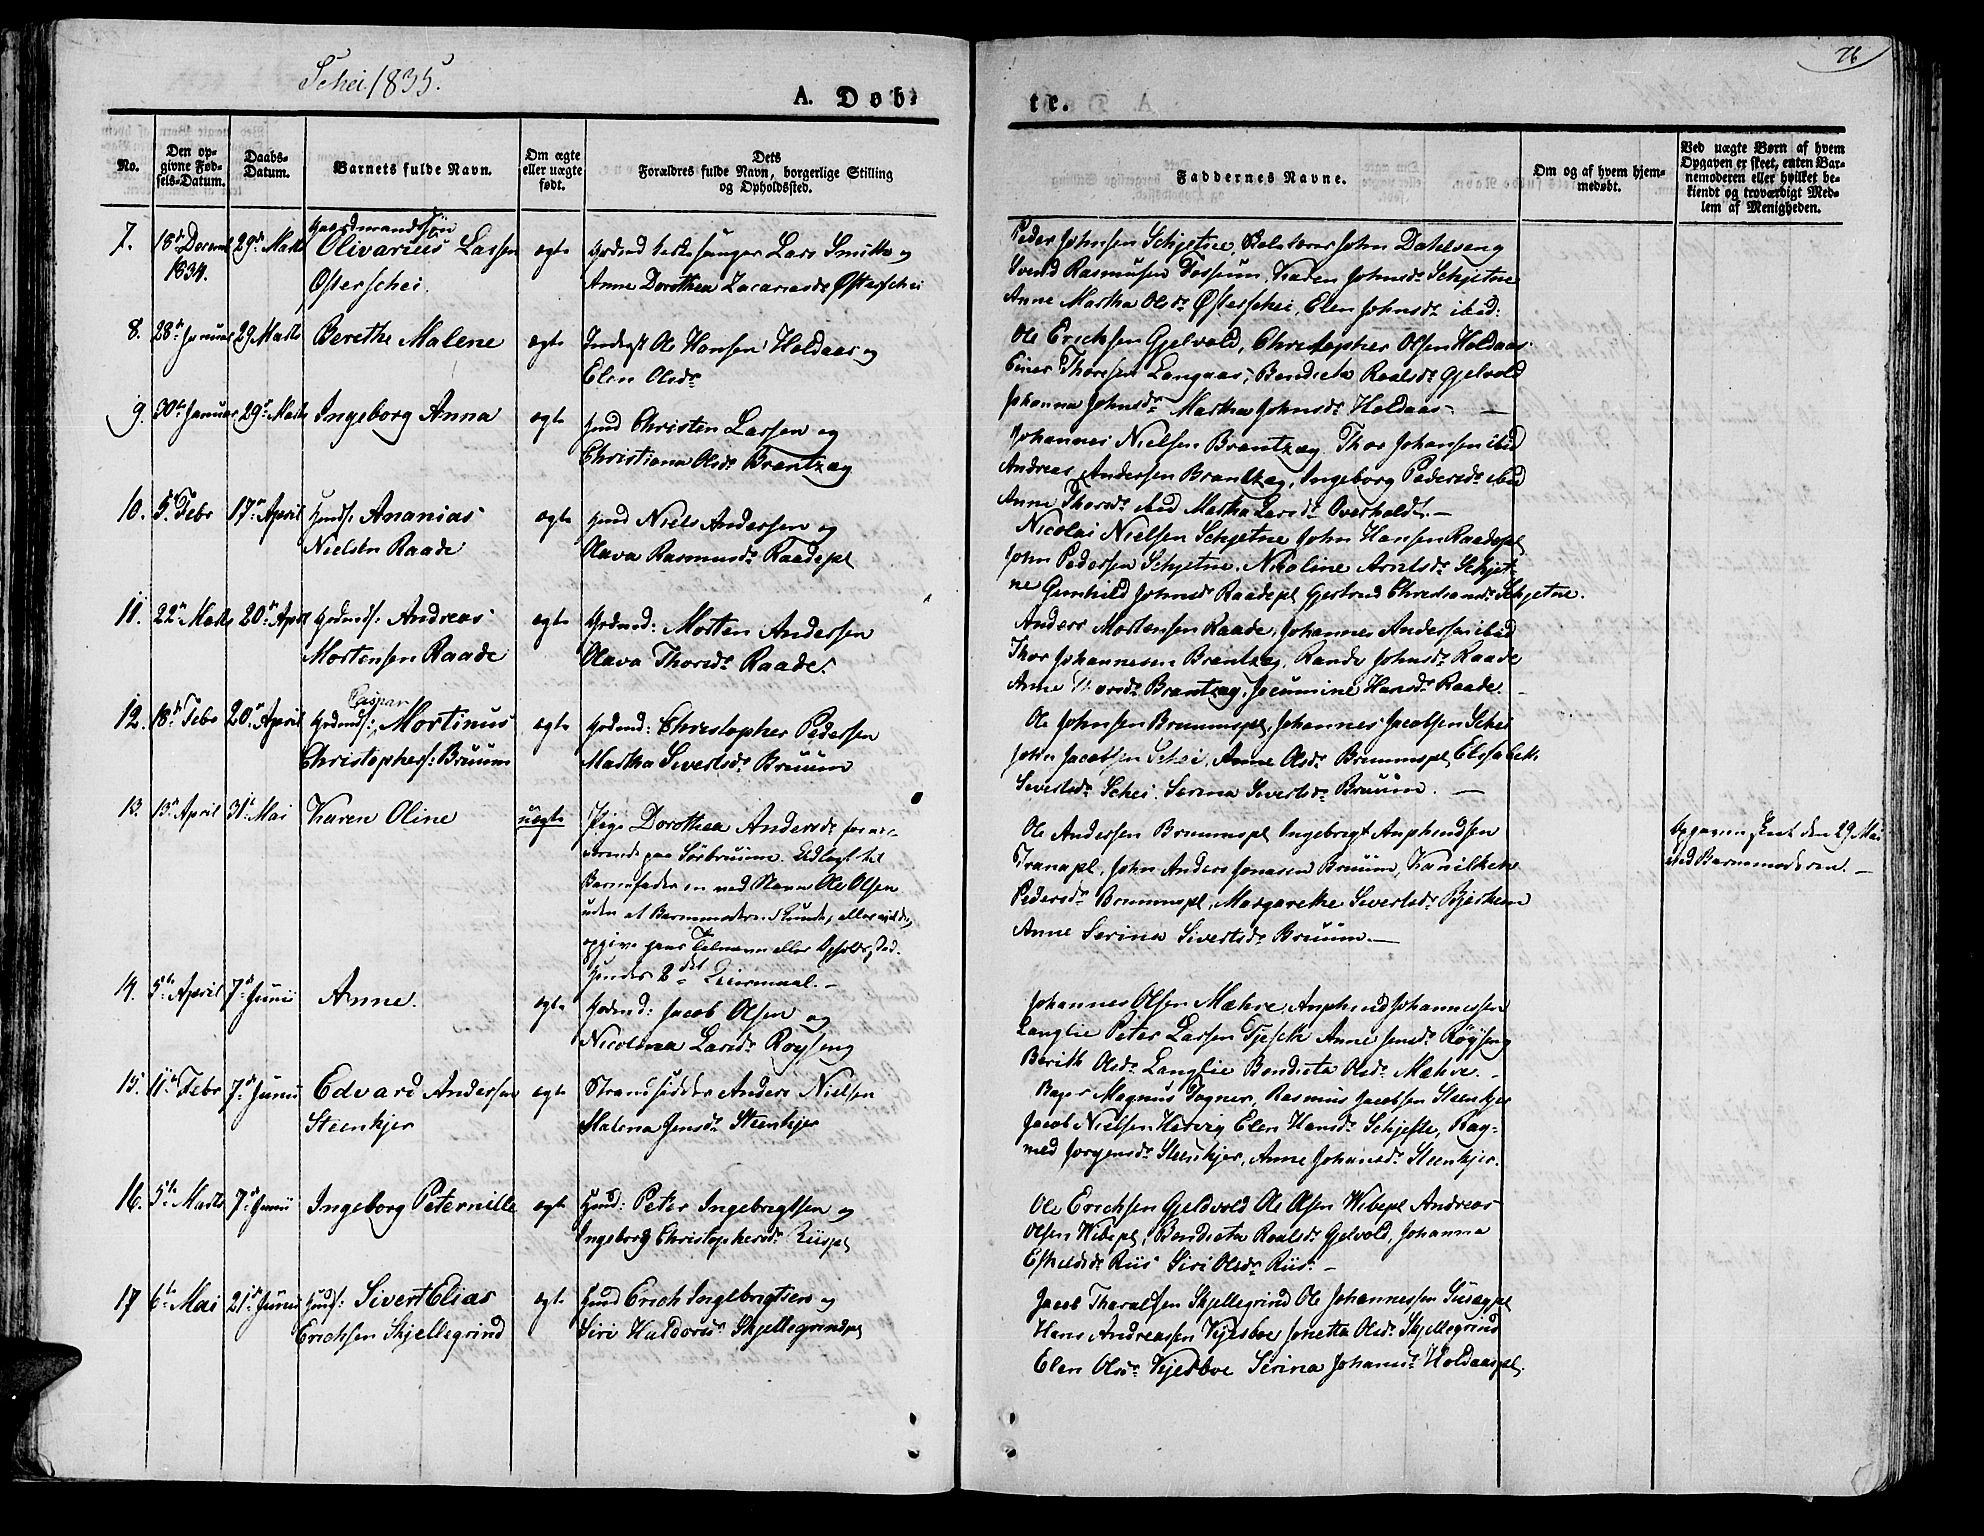 Schei 1835.
76
A. Døb-
te.
No.
Den op-
givne Fød-
sels-Datum.
Daabs-
Datum.
Barnets fulde Navn.
Om ægte
eller uægte
født.
Dets
Forældres fulde Navn, borgerlige Stilling
og Opholdssted.
Faddernes Navne.
Om og af hvem hjem-
medøbt.
Ved uægte Børn af hvem
Opgaven er skeet, enten Bar-
nemoderen eller hvilket be-
kiendt og troværdigt Med-
lem af Menigheden.
7.
1834.
Gaardmandssøn
Olivarius Lassen
Østerschei.
ægte
Lars Smitt og
Anne Dorothea Zacariasdr Østerschei
Peder Johnsen Schjetne, John Dahlseng
Svend Rasmusen Fossum, Karen Johnsdr Schjetne
Anne Martha Olsdr Østerschei, Elen Johnsdr ibid:
8. 28de Januar 29 Marts Berethe Malene ægte
Inderst Ole Hansen Holdaas og
Elen Olsdr
Ole Erichsen Gjelvold, Christopher Olsen Holdaas
Einer Thoresen Langaas, Bendicta Roalsdr Gjelvold
Johanna Johnsdr Martha Johnsdr Holdaas. —
9. 30te Januar 29de Marts Ingeborg Anna ægte
Hmd Christen Lassen og
Christiana Olsdr Brantzæg
Johannes Nielsen Brantzæg, Thor Johansen ibid
Andreas Andersen Brantzæg, Ingeborg Pedersdr ibid
Anne Thorsdr ibid Martha Larsdr Overholdt. —
10. 5te Febr 17de April Hmds: Ananias
Nielsen Raade
ægte
Hmd Niels Andersen og
Olava Rasmusdr Raadepl
Nicolai Nielsen Schjetne John Hansen Raadepl
John Pedersen Schjetne. Nicoline Arntsdr Schjet-
ne Gunhild Johnsdr Raadepl Gjertrud Christiansdr Schjetne.
11. 22de Marts 20de April Grdmds: Andreas
Mortensen Raade
ægte
Grdmd: Morten Andersen
Olava Thorsdr Raade.
Anders Mortensen Raade, Johannes Andersen ibid
Thor Johannesen Brantzæg, Randi Johnsdr Raade
Anne Thorsdr Brantzæg, Jocumine Hansdr Raade.
12. 18de Febr 20de April
Caspar
Grdmds: Mortinus
Christophers: Bruum
ægte
Grdmd: Christopher Pedersen
Martha Sivertsdr Bruum
Ole Johnsen Bruumspl, Johannes Jacobsen Schei
John Jacobsen Schei, Anne Olsdr Bruumspl, Elisabeth
Sivertsdr Schei. Serina Sivertsdr Bruum. —
13. 13de April 31te Mai Karen Oline uægte
Pige Dorothea Andersdr
paa Sørbruum. Udlagt til
Barnefader en ved Navn Ole Olsen
uden at Barnmoderen kunde, eller vilde,
opgive hans Tilnavn eller Opholdssted.
Hendes 2det Leiermaal. —
Ole Andersen Bruumspl Ingebrigt Amphindsen
Tranapl, John Anders Jonasen Bruum,
Pedersdr Bruumspl, Margarethe Sivertsdr Bjerkem
Anne Serina Sivertsdr Bruum. —
Opgaven skeet den 29 Mai
ved Barnmoderen. —
14. 5te April 7de Junii Anne. ægte
Grdmd: Jacob Olsen og
Nicolina Larsdr Røyseng
Johannes Olsen Mæhre, Amphind Johannessen
Langlie Peter Lassen Anne Jensdr Røyseng
Berith Olsdr Langlie Bendicta Olsdr Mæhre. —
15. 11te Febr 7de Junii Edvard Andersen
Steenkjer
ægte
Strandsidder Anders Nielsen
Malena Jensdr Steenkjer
Bager Magnus Fogner, Rasmus Jacobsen Steenkjer
Jacob Nielsen Elen Hansdr Schjefte, Rag-
ned Jørgensdr Steenkjer, Anne Johansdr Steenkjer.
16. 5te Marts 7de Junii Ingeborg Peternille ægte
Hmd: Peter Ingebrigtsen og
Ingeborg Christophersdr Riispl
Ole Erichsen Gjelvold Ole Olsen Wibepl Andreas
Olsen Wibepl, Bendicta Roalsdr Gjelvold, Johanna
Eskildsdr Riis Siri Olsdr Riis. —
17 6te Mai 21de Junii Hmds: Sivert Elias
Erichsen Skjellegrind
ægte
Hmd Erich Ingebrigtsen og
Siri Haldorsdr Skjellegrindpl
Jacob Tharalsen Skjellegrind Ole Johannessen
Hans Andreassen Kjesboe Jonetta Olsdr Skjellegrind
Elen Olsdr Kjesboe Serina Johansdr Holdaaspl.